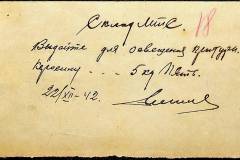 Склад МТС. 18
Выдайте для освещения
Керосину . . . 5 кг Пять.
22/XII-42.